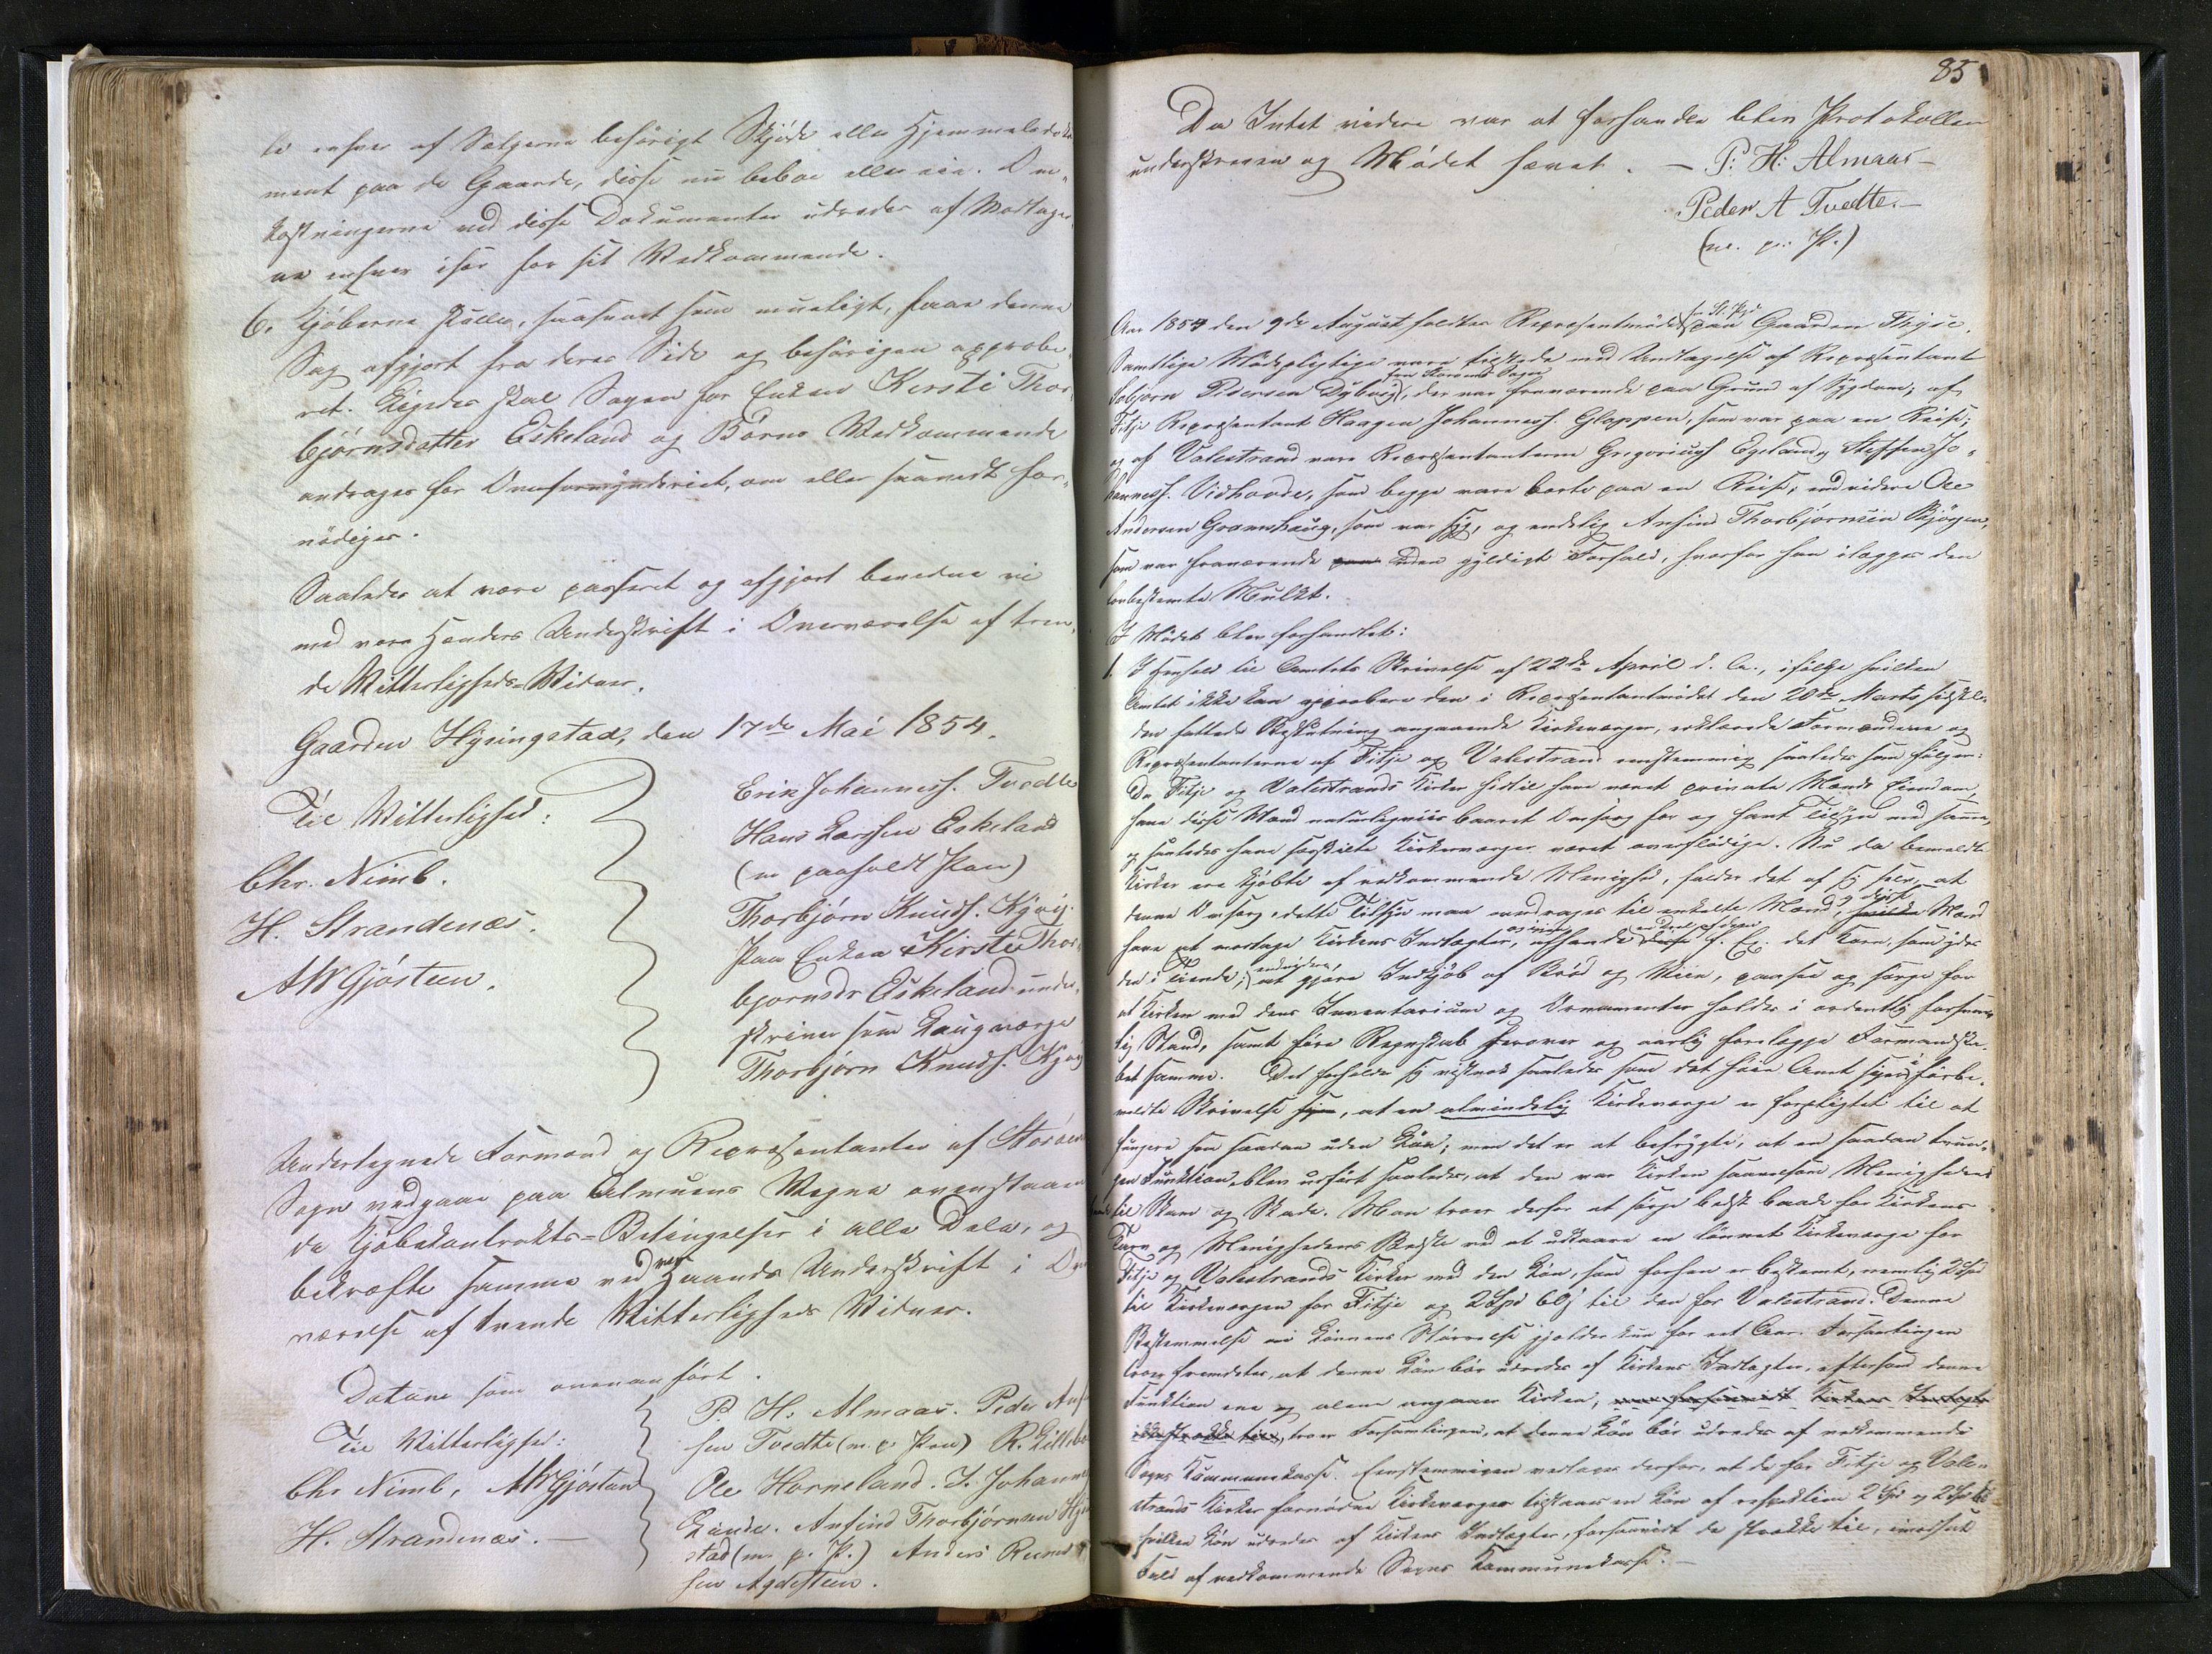 te enhver af Sælgerne behörigt Skjöde eller Hjemmelsdoku
ment paa de Gaarde, disse nu beboe eller eie. Om-
kostningerne ved disse Dokumenter udredes af Modtager-
ne enhver især for sit Vedkommende.
6. Kjöberne skulle, saasnart som mueligt, faae denne
Sag afgjort fra deres Side og behörigen approbe-
ret. Ligeden skal Sagen for Enken Kersti Thor-
björnsdatter Eskeland og Börns Vedkommende
andrages for Overformynderiet, om eller saavidt for-
nödiges.
Saaledes at være passeret og afgjort bevidne vi
med vore Hænders Underskrift i Overværelse af tven-
de Vitterligheds-Vidner.
Gaarden Hysingstad, den 17de Mai 1854.
Til Vitterlighed:
Chr. Nimb.
H. Strandenæs.
AW Gjösteen.
Erik Johanness. Tvedte
Hans Larssen Eskeland
(m paaholdt Pen)
Thorbjörn Knuds. Kyvig.
Paa Enken Kirsti Thor-
bjornsdr Eskeland under-
skriver som Laugværge
Thorbjörn Knuds. Kyvig
Undertegnede Formænd og Repræsentanter af Storöens
Sogn vedgaae paa Almuens Vegne ovenstaaen
de Kjöbekontrakts-Betingelser i alle Dele, og
bekræfte samme ved vor Haands Underskrift i Over
værelse af tvende Vitterligheds Vidner.
Datum som ovenanfört.
Til Vitterlighed:
Chr Nimb, AW Gjösteen
H. Strandenæs.
P. H. Almaas. Peder An
sen Tvedte (m. p. Pen) R. Lille
Ole Horneland. J. Johann
Lunde. Anfind Thorbjörnsen Hy
stad (m. p. P.) Anders Rasmus
sen Agdesteen.
85
Da Intet videre var at forhandle blev Protokollen
underskreven og Mödet hævet. - P. H. Almaas -
Peder A Tvedte. -
(m. p. P.)
Aar 1854 den 9de August holdtes Repræsentmöde paa Gaarden Fitje.
Samtlige Mödepligtige vare tilstede med Undtagelse af Repræsentant
Tobjörn Pedersen Dybvig, fra Storöens Sogn, der var fraværende paa Grund af Sygdom; af
Fitje Repræsentant Haagen Johanness. Gloppen, som var paa en Reise;
og af Valestrand vare Repræsentanterne Gregorius Egeland, Steffen Jo-
hanness. Vidhovde, som begge vare borte paa en Reise; endvidere Ole
Andersen Gramshaug, som var syg, og endelig Anfind Thorbjörnsen
som var fraværende uden gyldigt Forfald, hvorfor han ilægges den
lovbestemte Mulkt.
I Mödet blev forhandlet:
1. I Henhold til Amtets Skrivelse af 22de April d. A., ifölge hvilken
Amtet ikke kan approbere den i Repræsentantmödet den 20de Marts sidstle-
den fattede Beslutning angaaende Kirkeværger, erklærede Formændene og
Repræsentanterne af Fitje og Valestrand eenstemmig saaledes som fölger:
Da Fitje og Valestrands Kirker hidtil have været private Mænds Eiendom,
have disse Mænd naturligviis baaret Omsorg for og havt Tilsyn med samme,
og saaledes have særskilte Kirkeværger været overflödige. Nu da bemeldte
Kirker ere kjöbte af vedkommende Menighed, falder det af sig selv, at
denne Omsorg og dette Tilsyn maa overdrages til enkelte Mænd, og disse Mænd
have at modtage Kirkens Indtægter, afhænde f. Ex. det Korn, som ydes
den i Tiende; endvidere at gjöre Indkjöb af Bröd og Viin, paasee og sörge for
at Kirken med dens Inventarium og Ornamenter holdes i ordentlig forsvar-
lig Stand, samt före Regnskab herover og aarlig forelægge Formandska-
bet samme. Det forholder sig vistnok saaledes som det höie Amt siger i förbe-
meldte Skrivelse, at en almindelig Kirkeværge er forpligtet til at
fungere som saadan uden Lön; men det er at befrygte, at en saadan tvun-
gen Funktion blev udfört saaledes, at den var Kirken saavelsom Menigheden
til Skam og Skade. Man troer derfor at sörge bedst baade for Kirkens
Tarv og Menighedens Bedste ved at udkaare en lönnet Kirkeværge for
Fitje og Valestrands Kirker med den Lön, som forhen er bestemt, nemlig 2 Spd
til Kirkeværgen for Fitje og 2 Spd 60 s til den for Valestrand. Denne
Bestemmelse om Lönnens Störrelse gjælder kun for eet Aar. Forsamlingen
troer fremdeles, at denne Lön bör udredes af Kirkens Indtægter, eftersom denne
Funktion ene og alene angaaer Kirken,
troer Forsamlingen, at denne Lön bör udredes af vedkommende
Sogns Kommunekasse. Eenstemmigen vedtages derfor, at de for Fitje og Vale-
strands Kirker fornödne Kirkeværger tilstaaes en Lön af respektive 2 Spd og 2 Spd 60 s
hvilken Lön udredes af Kirkens Indtægter, forsaavidt de strække til, i modsat
Fald af vedkommende Sogns Kommunekasse. -